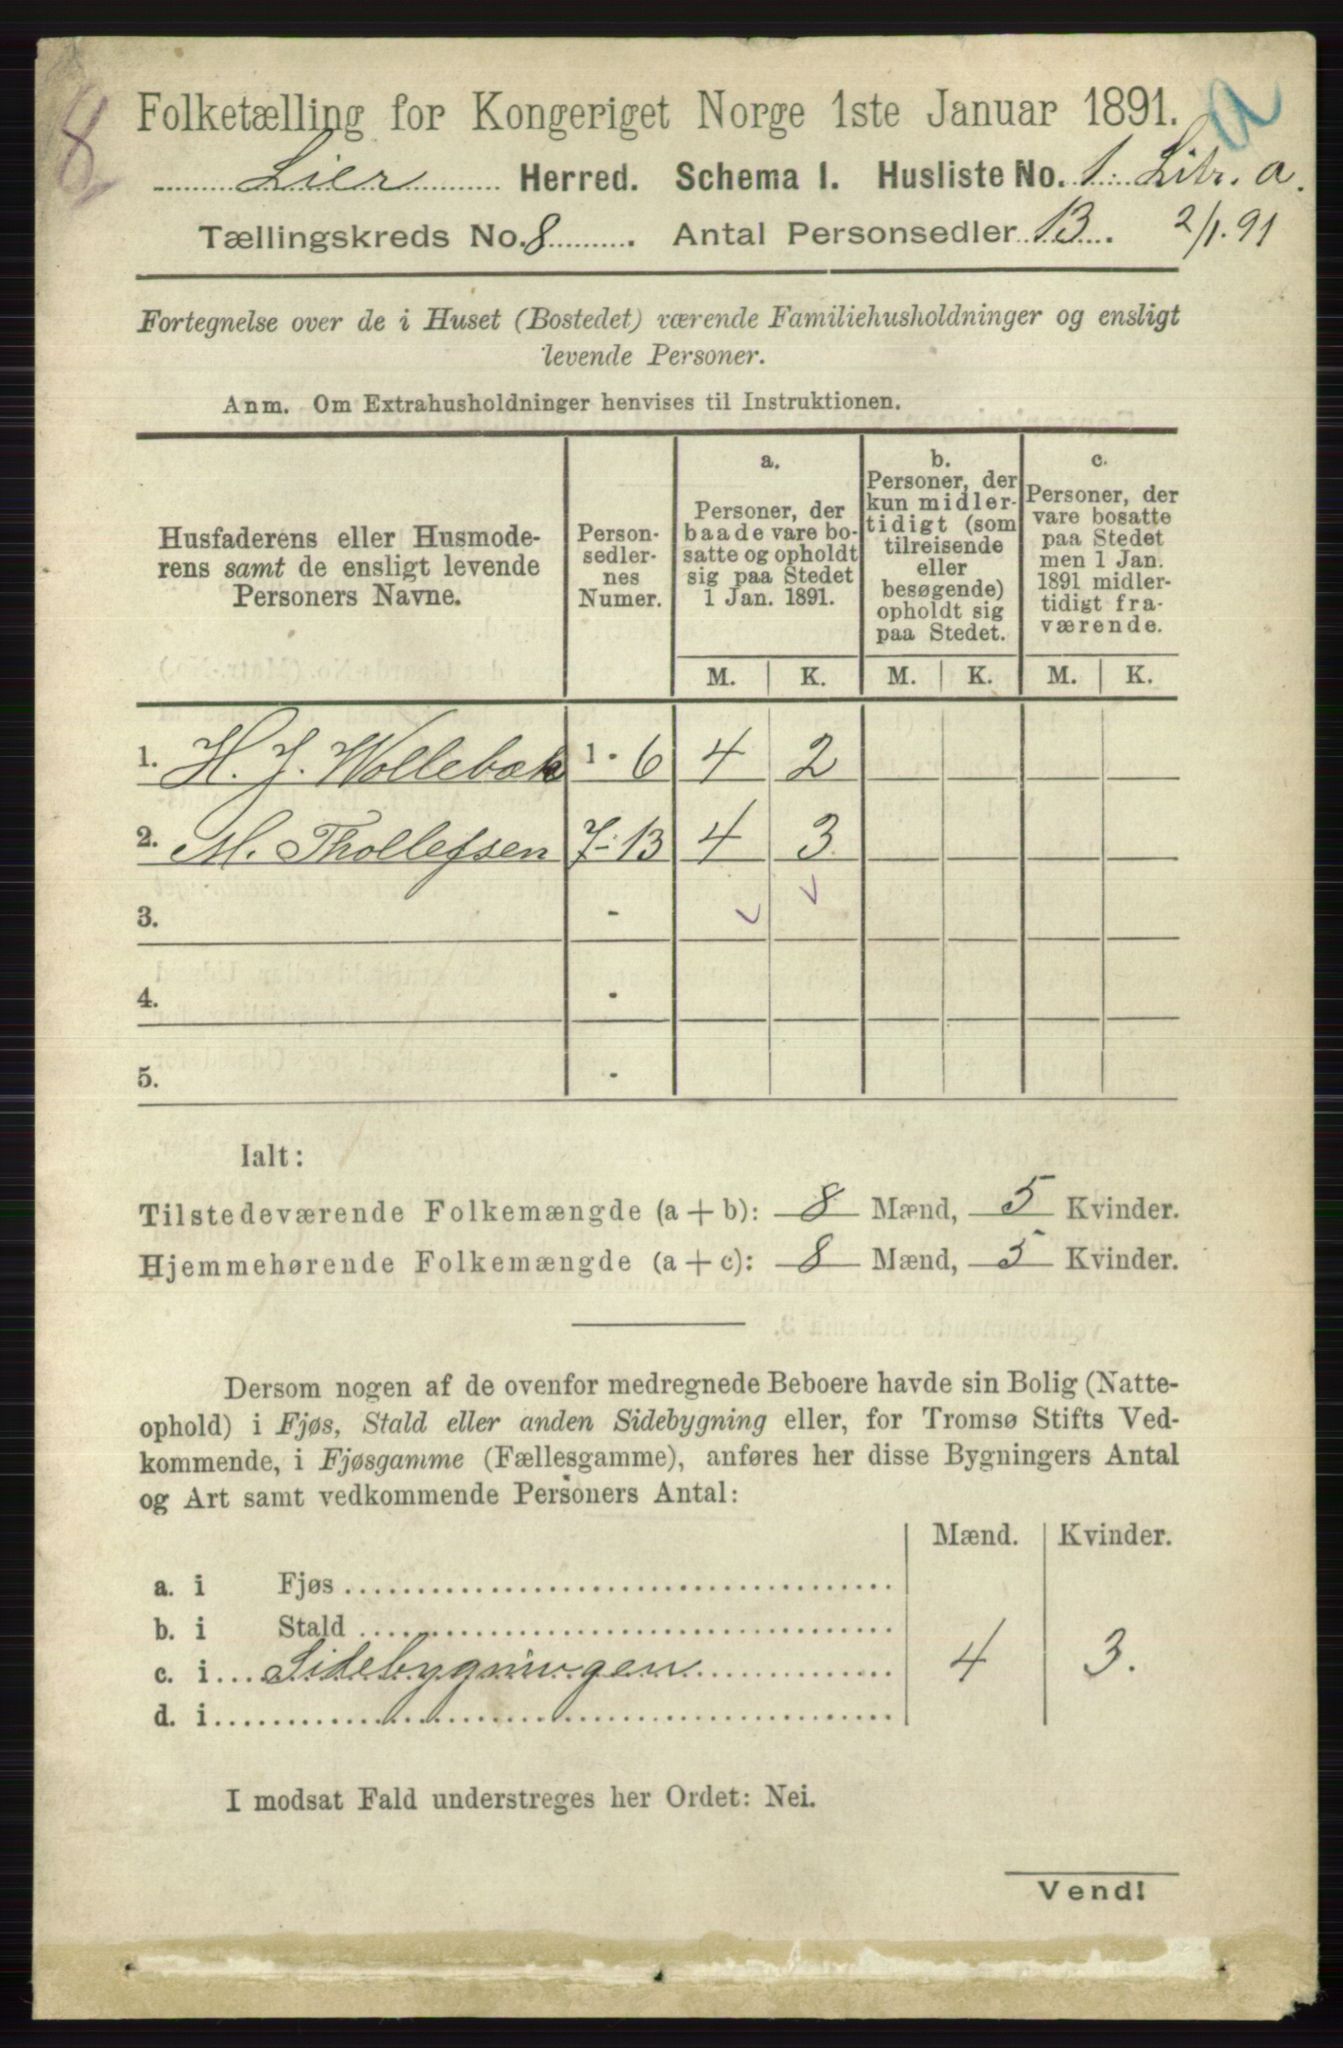 8
a
Folketælling for Kongeriget Norge 1ste Januar 1891.
Lier Herred. Schema I. Husliste No. 1. Litr. a.
Tællingskreds No. 8. Antal Personsedler 13. 2/1. 91
Fortegnelse over de i Huset (Bostedet) værende Familiehusholdninger og ensligt
levende Personer.
Anm. Om Extrahusholdninger henvises til Instruktionen.
Husfaderens eller Husmode-
rens samt de ensligt levende
Personers Navne.
Person-
sedler-
nes
Numer.
a.
Personer, der
baade vare bo-
satte og opholdt
sig paa Stedet
1 Jan. 1891.
b.
Personer, der
kun midler-
tidigt (som
tilreisende
eller
besøgende)
opholdt sig
paa Stedet.
c.
Personer, der
vare bosatte
paa Stedet
men 1 Jan.
1891 midler-
tidigt fra-
værende.
M. K. M. K. M. K.
1. H. J. Wollebæk 1 - 6 4 2
2. M. Thollefsen 7 - 13 4 3
3. -
4. -
5. -
Ialt:
Tilstedeværende Folkemængde (a + b): 8 Mænd, 5 Kvinder.
Hjemmehørende Folkemængde (a + c): 8 Mænd, 5 Kvinder.
Dersom nogen af de ovenfor medregnede Beboere havde sin Bolig (Natte-
ophold) i Fjøs, Stald eller anden Sidebygning eller, for Tromsø Stifts Ved-
kommende, i Fjøsgamme (Fællesgamme), anføres her disse Bygningers Antal
og Art samt vedkommende Personers Antal:
Mænd. Kvinder.
a. i Fjøs
b. i Stald
c. i Sidebygningen 4 3.
d. i
I modsat Fald understreges her Ordet: Nei.
Vend!